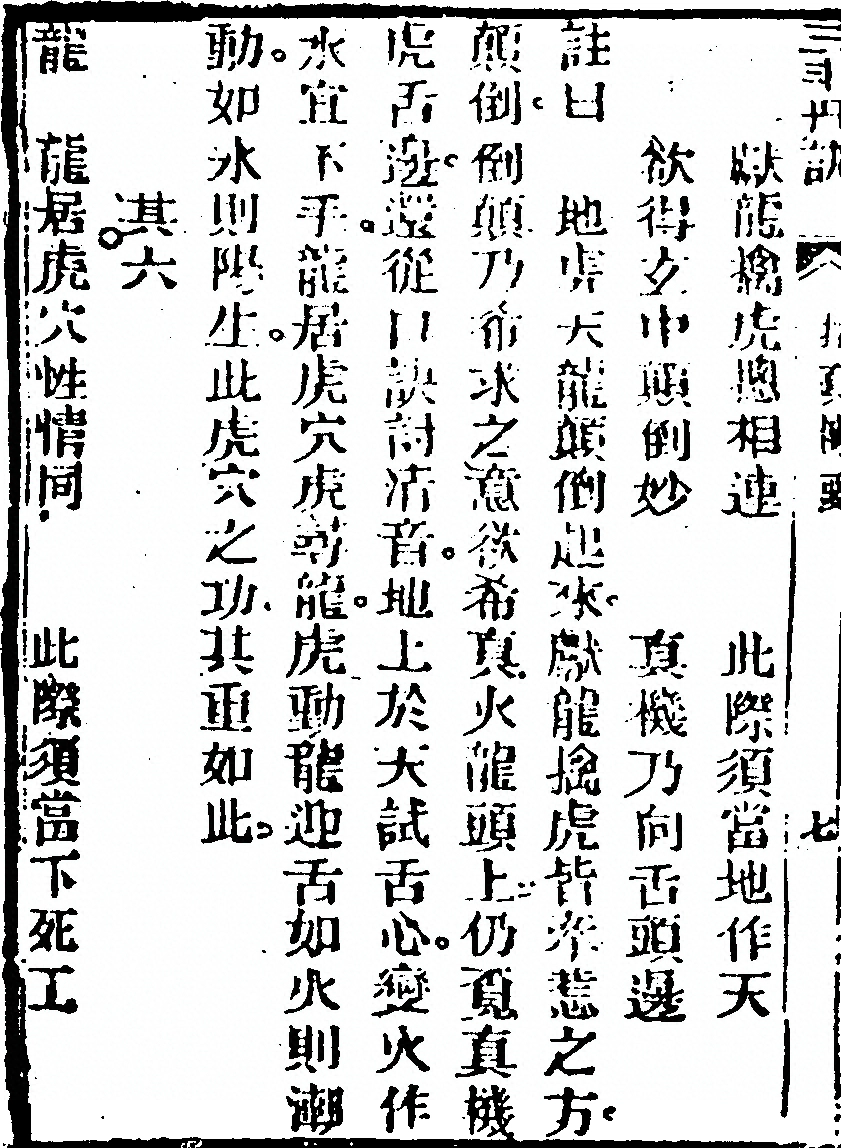 三丰丹訣 指真 七
獻龍擒虎總相連 此際須當地作天
欲得玄中顛倒妙 真機乃向舌頭邊
註曰 地虎天龍顛倒起來獻龍擒虎皆牽惹之方
顛倒倒顛乃希求之意欲希真火龍頭上仍覓真機
虎舌邊還從口訣討活音地上於天試舌心變火作
水宜下手龍居虎穴虎尋龍虎動龍迎舌如火則潮
動如水則陽生此虎穴之功其重如此
其六
龍 龍居虎穴性情同 此際須當下死工